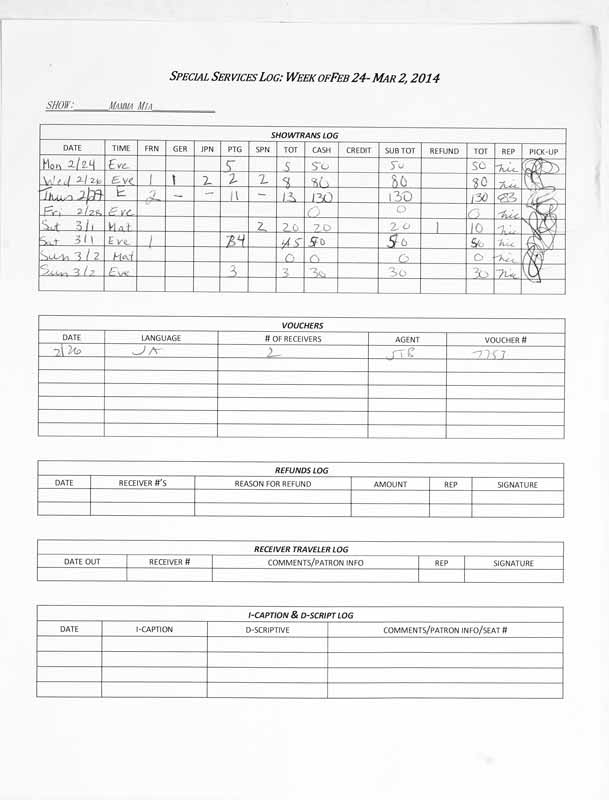 SPECIAL SERVICES LOG: WEEK OFFEB 24- MAR 2, 2014
SHOW: MAMMA MIA
SHOWTRANS LOG
DATE TIME FRN GER JPN PTG SPN TOT CASH CREDIT SUB TOT REFUND TOT REP PICK-UP
Mon 2/24 Eve 5 5 50 50 50 nic
Wed 2/26 Eve 1 1 2 2 2 8 80 80 80 nic
Thus 2/27 E 2 - - 11 - 13 130 130 130
Fri 2/28 Eve 0 0 0 nic
Sat 3/1 Mat 2 20 20 20 1 10 nic
Sat 3/1 Eve 1 4 5 50 50 50 nic
Sun 3/2 Mat 0 0 0 0 nic
Sun 3/2 Eve 3 3 30 30 30 nic
VOUCHERS
DATE LANGUAGE # OF RECEIVERS AGENT VOUCHER #
2/26 JA 2 JTB 7753
REFUNDS LOG
DATE RECEIVER #'S REASON FOR REFUND AMOUNT REP SIGNATURE
RECEIVER TRAVELER LOG
DATE OUT RECEIVER # COMMENTS/PATRON INFO REP SIGNATURE
I-CAPTION & D-SCRIPT LOG
DATE I-CAPTION D-SCRIPTIVE COMMENTS/PATRON INFO/SEAT #